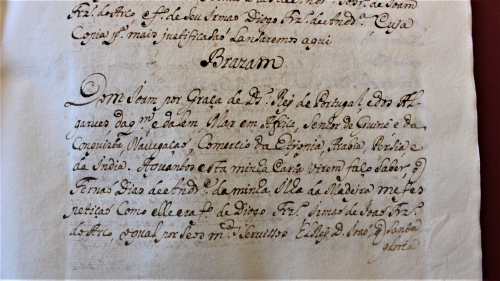 Frz. do Arco, e f.º de seu Irmao Diogo Frz. de And.e Cuja
Copia p.ª mais justificasaõ Lansaremos aqui
Brazam
Dom Joam por Graça de D.s Rey de Portugal, e dos Al
garues daq.m e dalem Mar em Africa, Senhor de Guine e da
Conquista, Nauegaçaõ, Comercio da Etyopia Arabia Persia e
da India. Aquantos esta minha Carta virem faço Saber, q
Fernaõ Dias de And.e da minha Ilha da Madeira me fes
petiçaõ Como elle era f.º de Diogo Frz. Irmaõ de Joaõ Frz.
do Arco, o qual por seos m.tos Seruissos ElRey D. Joaõ, q Santa
gloria